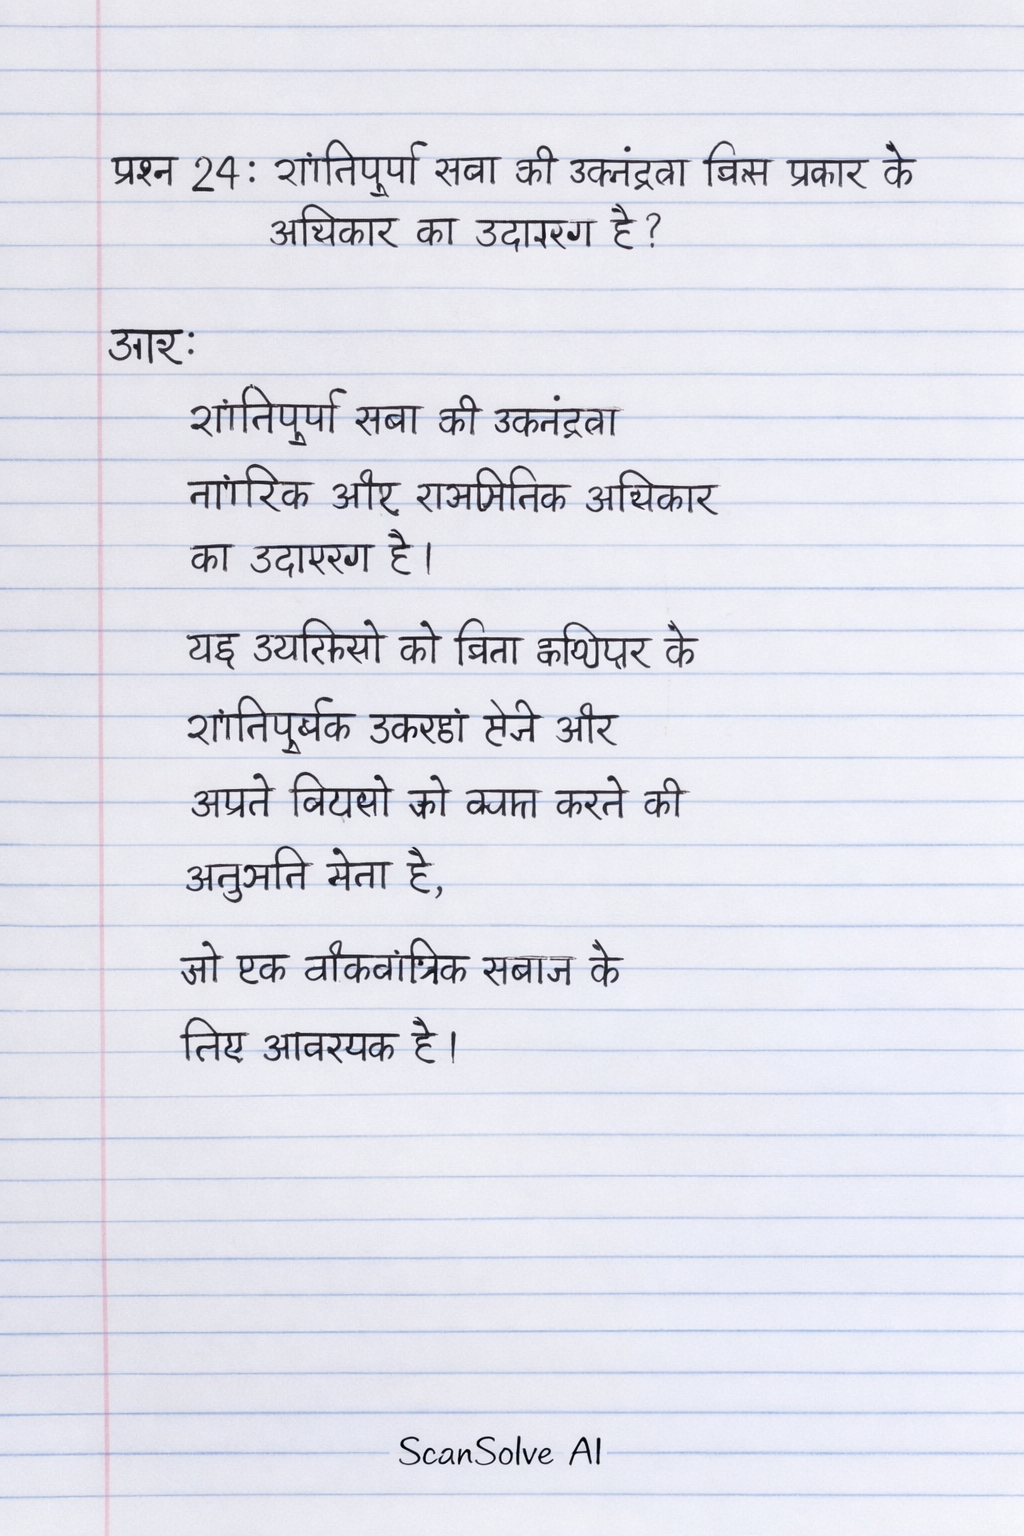 प्रश्न 24: शांतिपूर्पा सबा की उकनंद्रवा बिस प्रकार के
अधिकार का उदाररग है?
आर:
शांतिपूर्पा सबा की उकनंद्रवा
नागरिक और राजमितिक अधिकार
का उदाररग है।
यह को बिता के
शांतिपूर्बक और
अप्रते को करते की
अनुमति मेता है,
जो एक वीकवांत्रिक सबाज के
तिए आवश्यक है।
ScanSolve AI